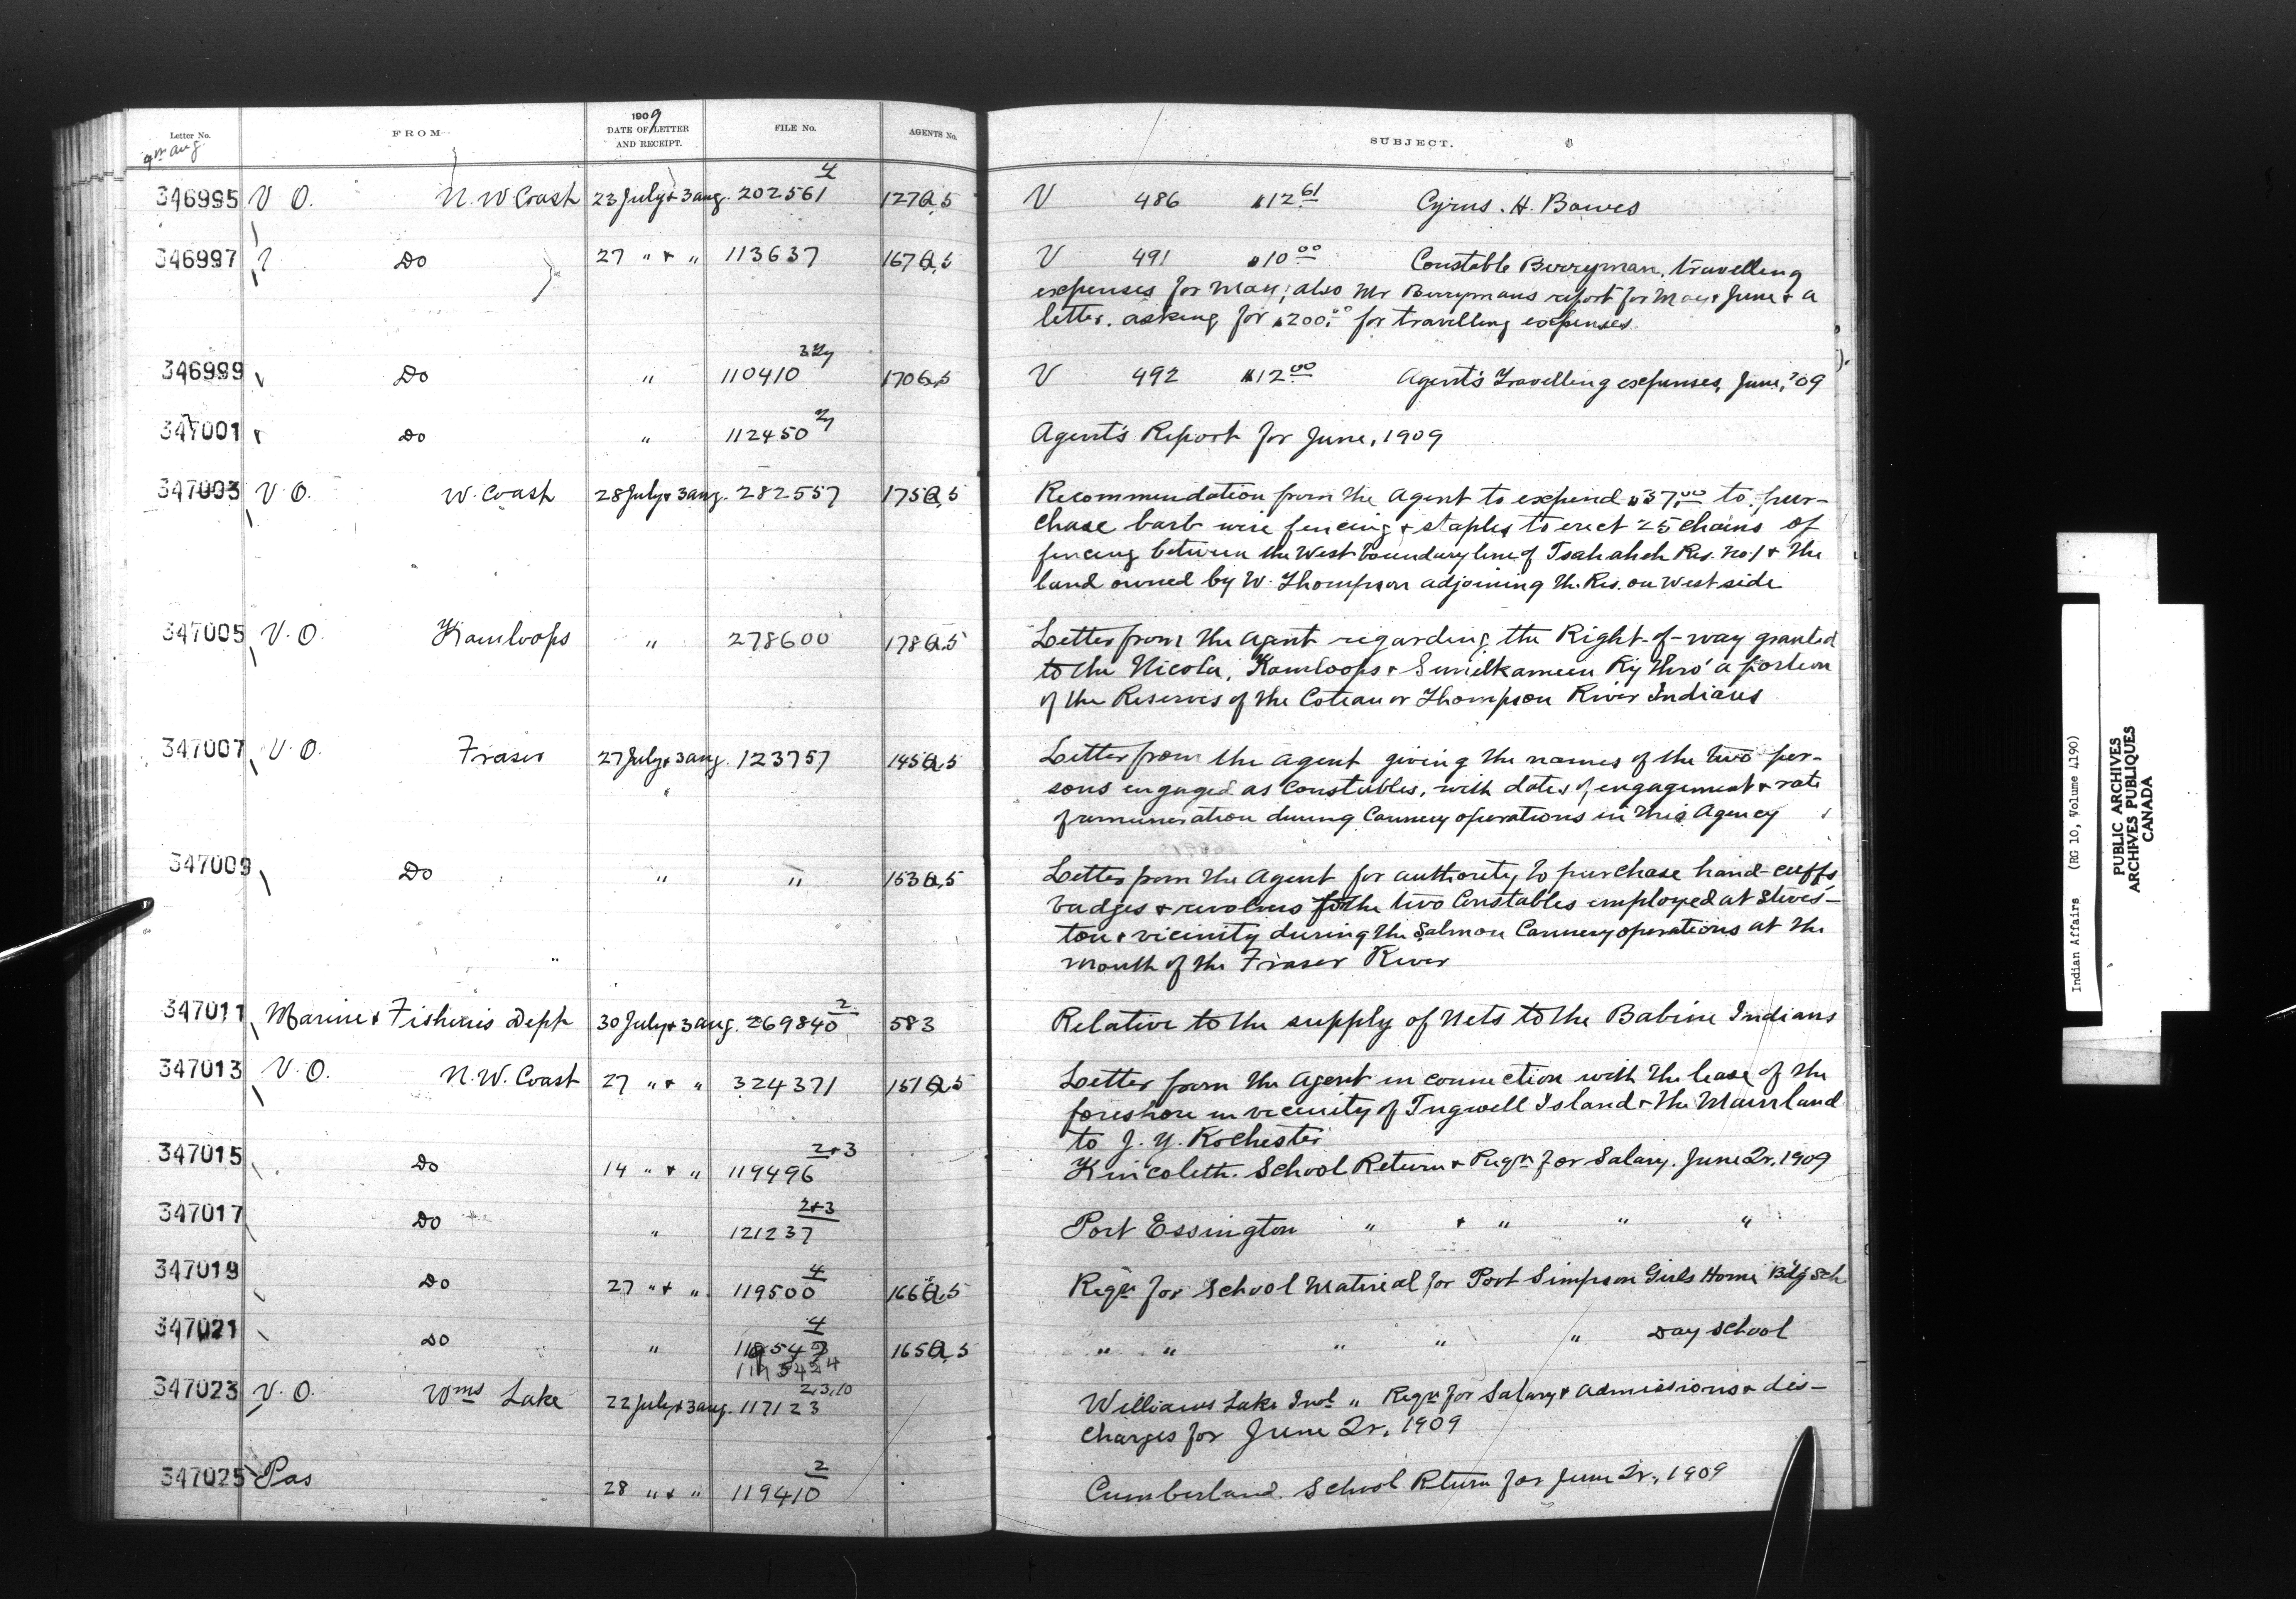 Letter No. FROM 1909 DATE OF LETTER AND RECEIPT. FILE No. AGENTS No. SUBJECT.
4th Aug
346995 V O. N. W Coast 23 July & 3 Aug. 202561 4 127 Q.5 V 486 $12.61 Cyrus. H. Bowes
346997 Do 27 " & " 113637 167 Q.5 V 491 $10.00 Constable Berryman, travelling
expenses for May; also Mr Berrymans report for May & June & a
letter asking for $200.00 for travelling expenses.
346999 Do " 110410 170 Q.5 V 492 $12.00 Agent's Travelling expenses, June, '09
347001 Do " 112450 Agent's Report for June, 1909
347003 V O. W. Coast 28 July & 3 Aug. 282557 175 Q.5 Recommendation from the Agent to expend $37.00 to pur-
chase barb wire fencing & staples to erect 25 chains of
fencing between the West boundary line of Tsahaheh Res. No. 1 & the
land owned by W. Thompson adjoining th. Res. on West side
347005 V. O. Kamloops " 278600 178 Q.5 Letter from the Agent regarding the Right-of-way granted
to the Nicola, Kamloops & Similkameen Ry thro' a portion
of the Reserves of the Coteau or Thompson River Indians
347007 V. O. Fraser 27 July & 3 Aug. 123757 145 Q.5 Letter from the Agent giving the names of the two per-
sons engaged as Constables, with dates of engagement & rate
of remuneration during Cannery operations in this Agency
347009 Do " " 153 Q.5 Letter from the Agent for authority to purchase hand-cuffs
badges & revolvers for the two Constables employed at Steves-
ton & vicinity during the Salmon Cannery operations at the
mouth of the Fraser River
347011 Marine & Fisheries Dept 30 July & 3 Aug. 269840 2 583 Relative to the supply of Nets to the Babine Indians
347013 V. O. N. W. Coast 27 " & " 324371 151 Q.5 Letter from the Agent in connection with the lease of the
foreshore in vicinity of Tugwell Island & the Mainland
to J. Y. Rochester
347015 Do 14 " & " 119496 2+3 Kincoleth. School Return & Reqn for Salary. June Qr, 1909
347017 Do " 121237 2+3 Port Essington " & " " "
347019 Do 27 " & " 119500 4 166 Q.5 Reqn for School Material for Port Simpson Girls Home Bdg Sch
347021 Do " 4 165 Q.5 " " " " " Day School
119542 4
347023 V. O. Wms Lake 22 July & 3 Aug. 117123 2,3,10 Williams Lake Indl " Reqn for Salary & Admissions & dis-
charges for June Qr, 1909
347025 Pas 28 " & " 119410 2 Cumberland. School Return for June Qr., 1909
Indian Affairs (RG 10, Volume 4190)
PUBLIC ARCHIVES
ARCHIVES PUBLIQUES
CANADA